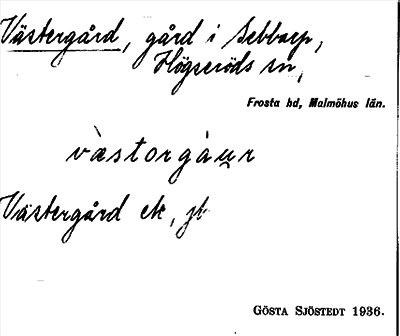 Västergård, gård i Sebbarp,
Högseröds sn,
Frosta hd, Malmöhus län.
vàstorgåu̯r
Västergård ek, jk
GÖSTA SJÖSTEDT 1936.